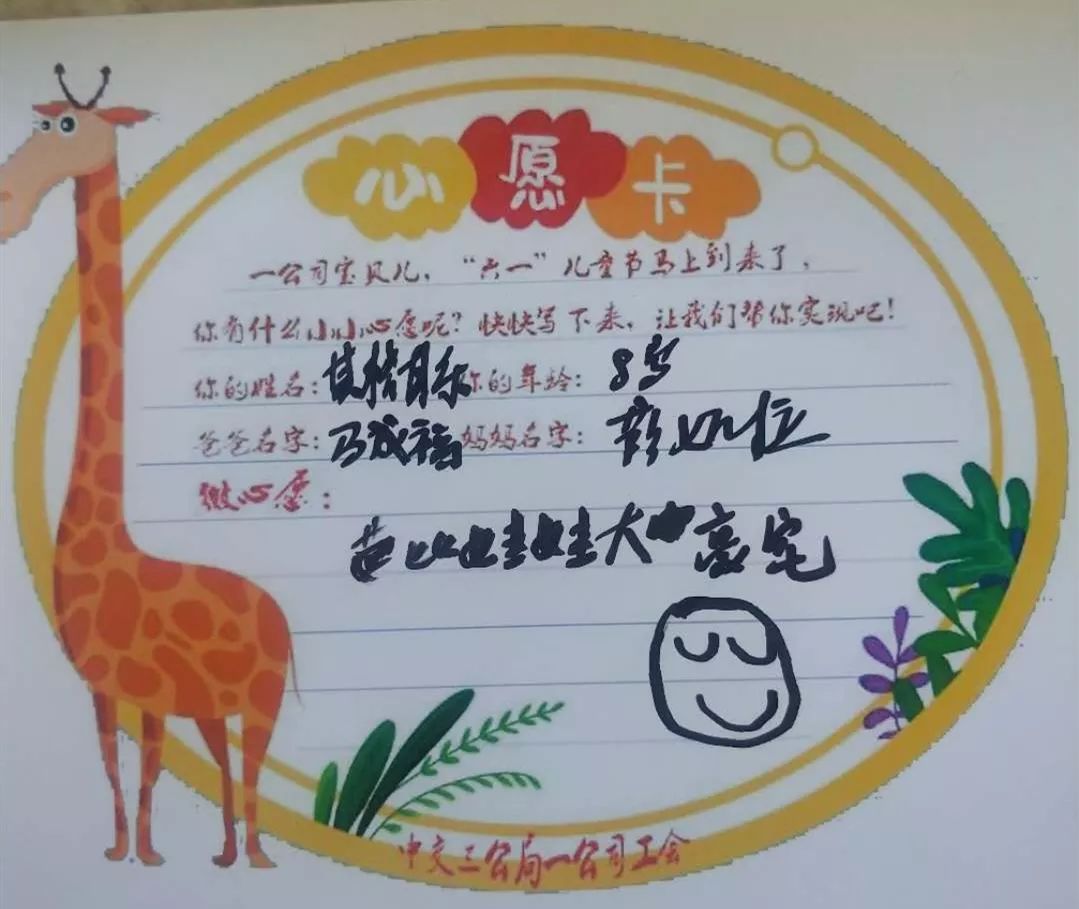 心愿卡
一公司宝贝儿，“六一”儿童节马上到来了，
你有什么小小心愿呢？快快写下来，让我们帮你实现吧！
你的姓名： 你的年龄：8岁
爸爸名字：马成福 妈妈名字：
微心愿：
芭比娃娃大 豪宅
中交三公局一公司工会